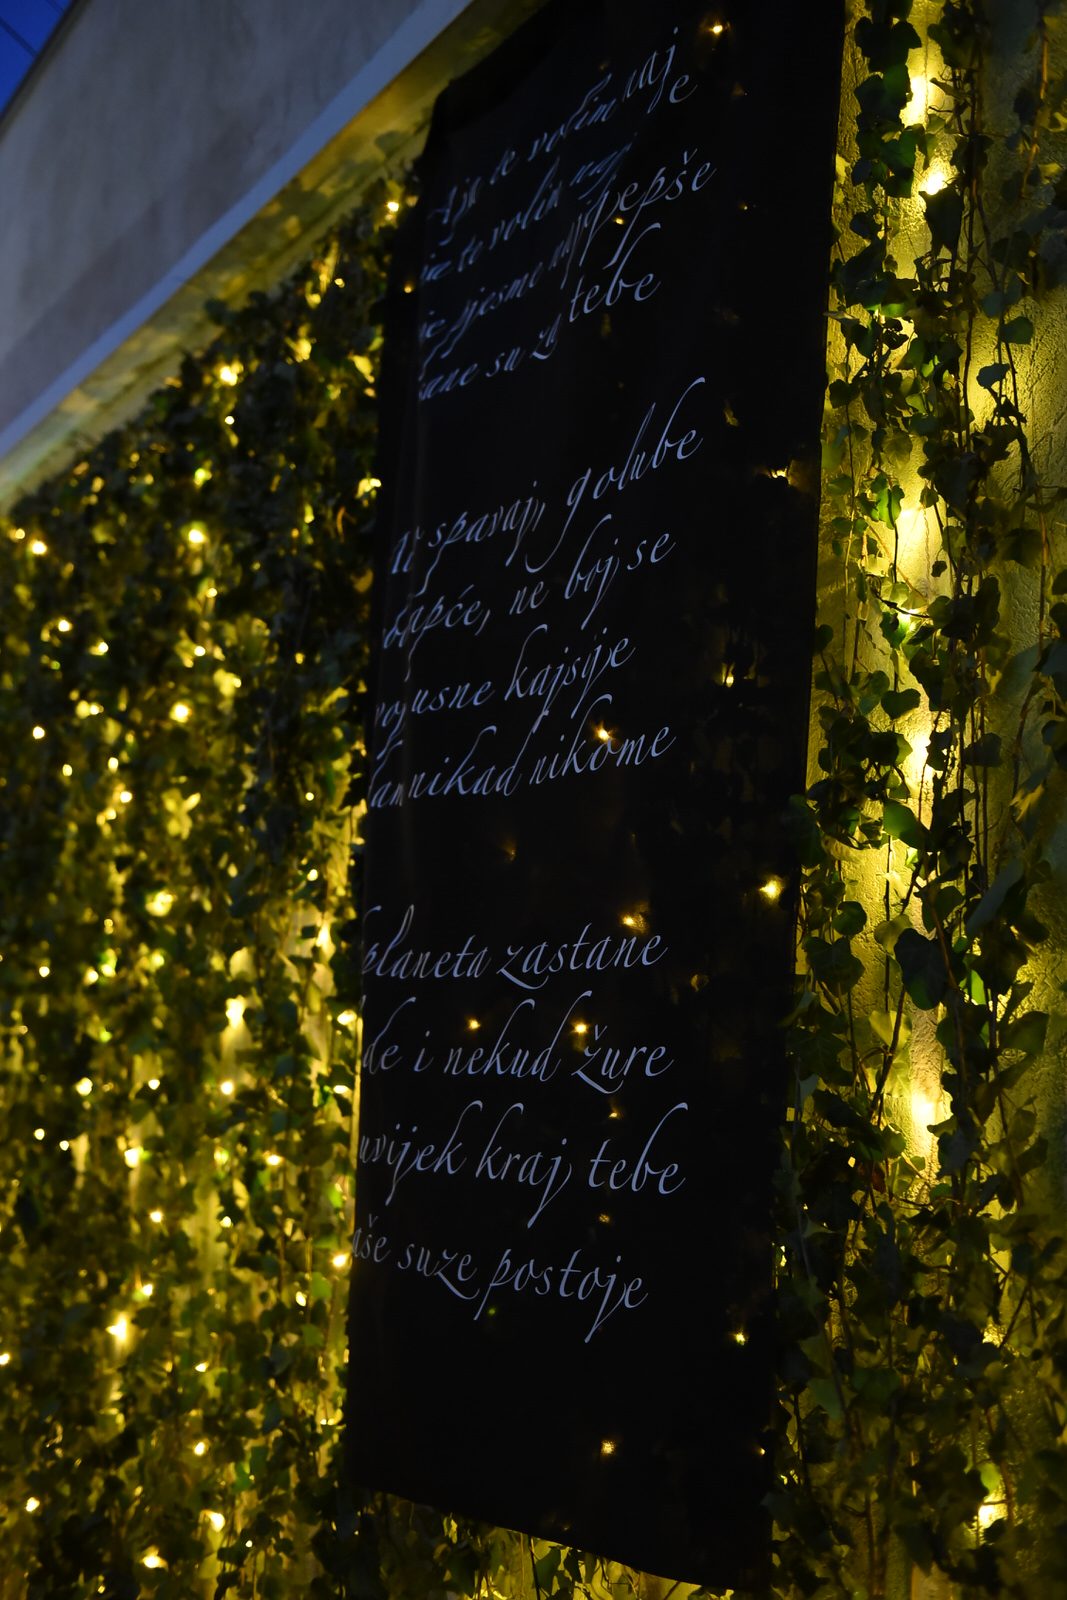 te volim naj
te volim naj
pjesme najljepše
su za tebe
spavaj, golube
šapće, ne boj se
usne kajsije
nikad nikome
planeta zastane
i nekud žure
uvijek kraj tebe
suze postoje